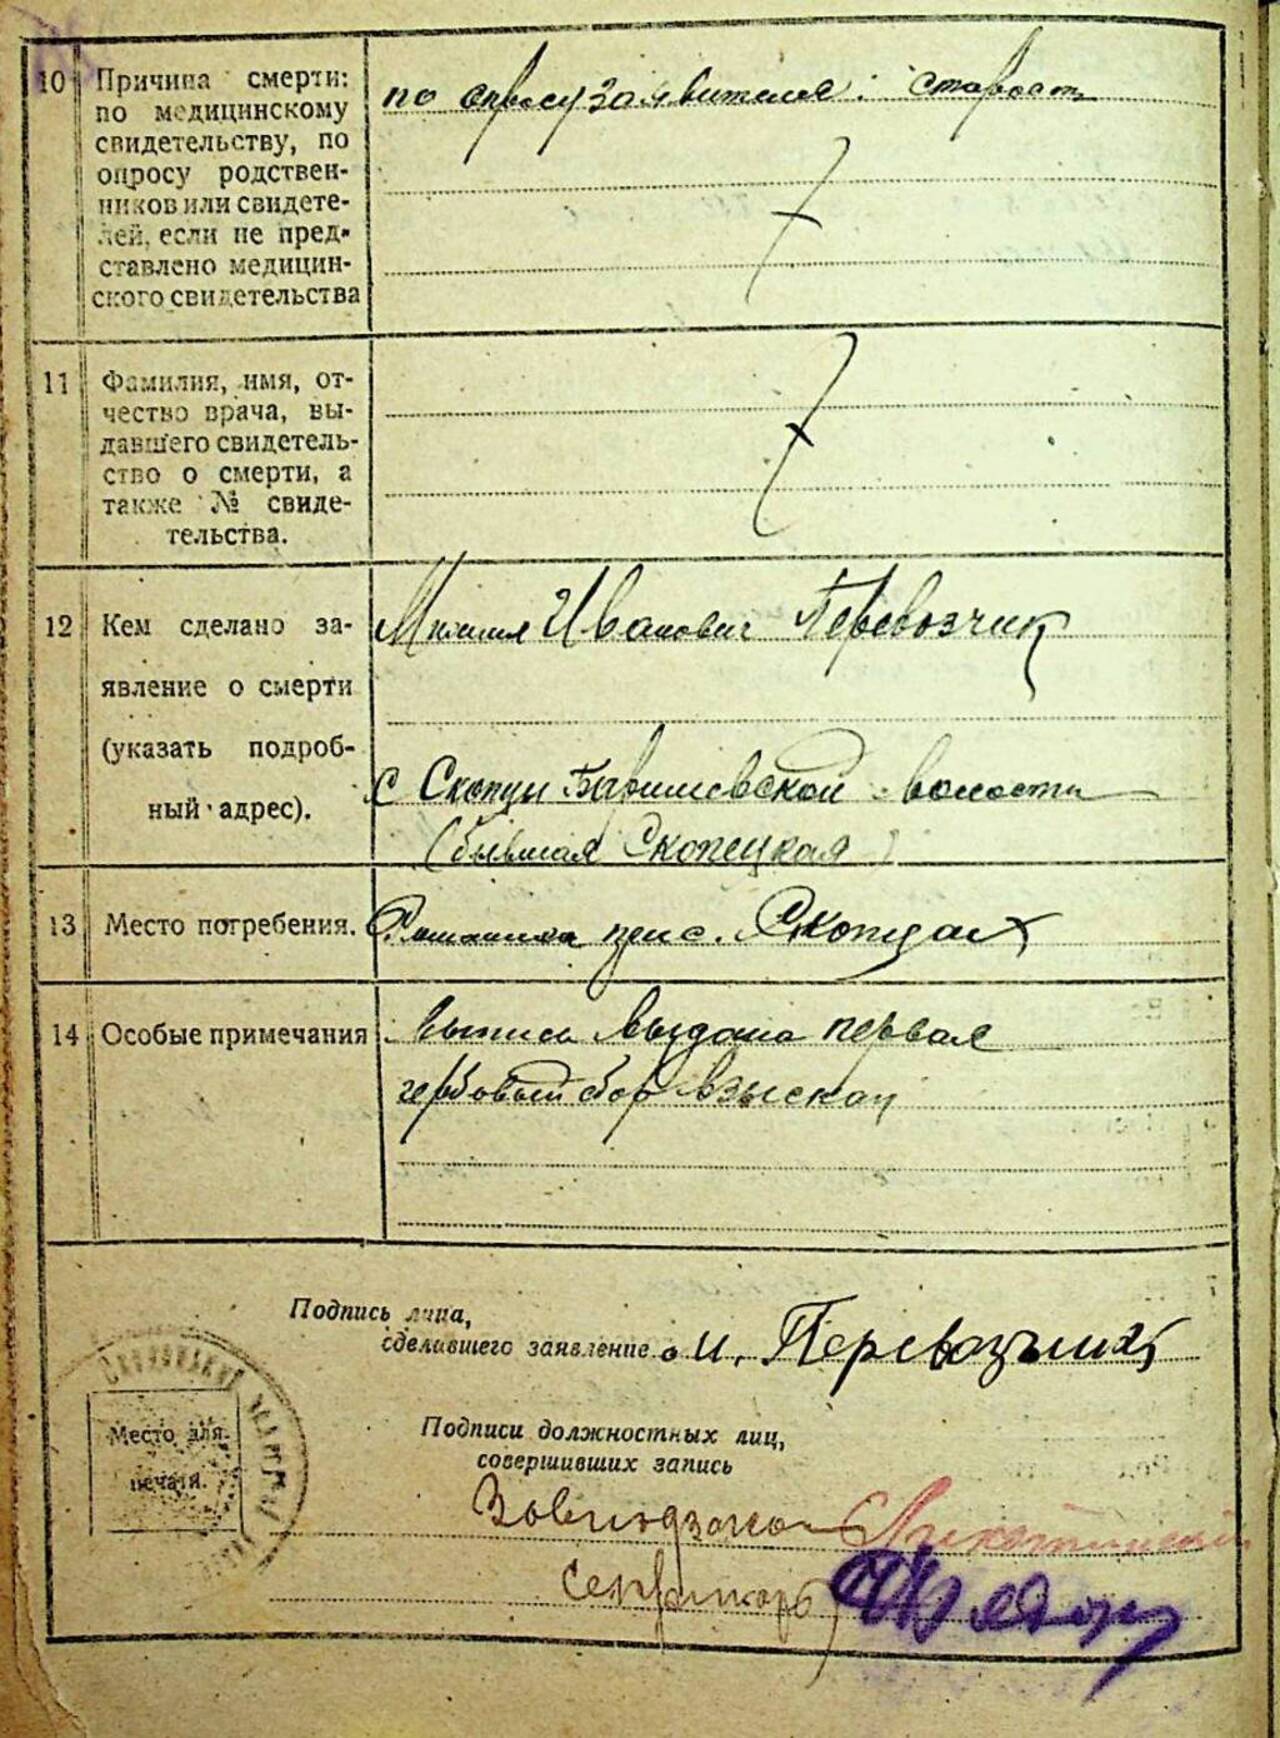 10 Причина смерти:
по медицинскому
свидетельству, по
опросу родствен-
ников или свидете-
лей, если не пред-
ставлено медицин-
ского свидетельства
по опросу заявителя: старость
11 Фамилия, имя, от-
чество врача, вы-
давшего свидетель-
ство о смерти, а
также № свиде-
тельства.
12 Кем сделано за-
явление о смерти
(указать подроб-
ный адрес).
Михаил Иванович Перевозчик
с Скопцы Барышевской волости
(бывшая Скопецкая)
13 Место погребения.
при с. Скопцах
14 Особые примечания
выпись выдана первая
гербовый сбор взыскан
Подпись лица,
сделавшего заявление
И. Перевозчик
Место для
печати.
Подписи должностных лиц,
совершивших запись
Завподзагс
Секретарь